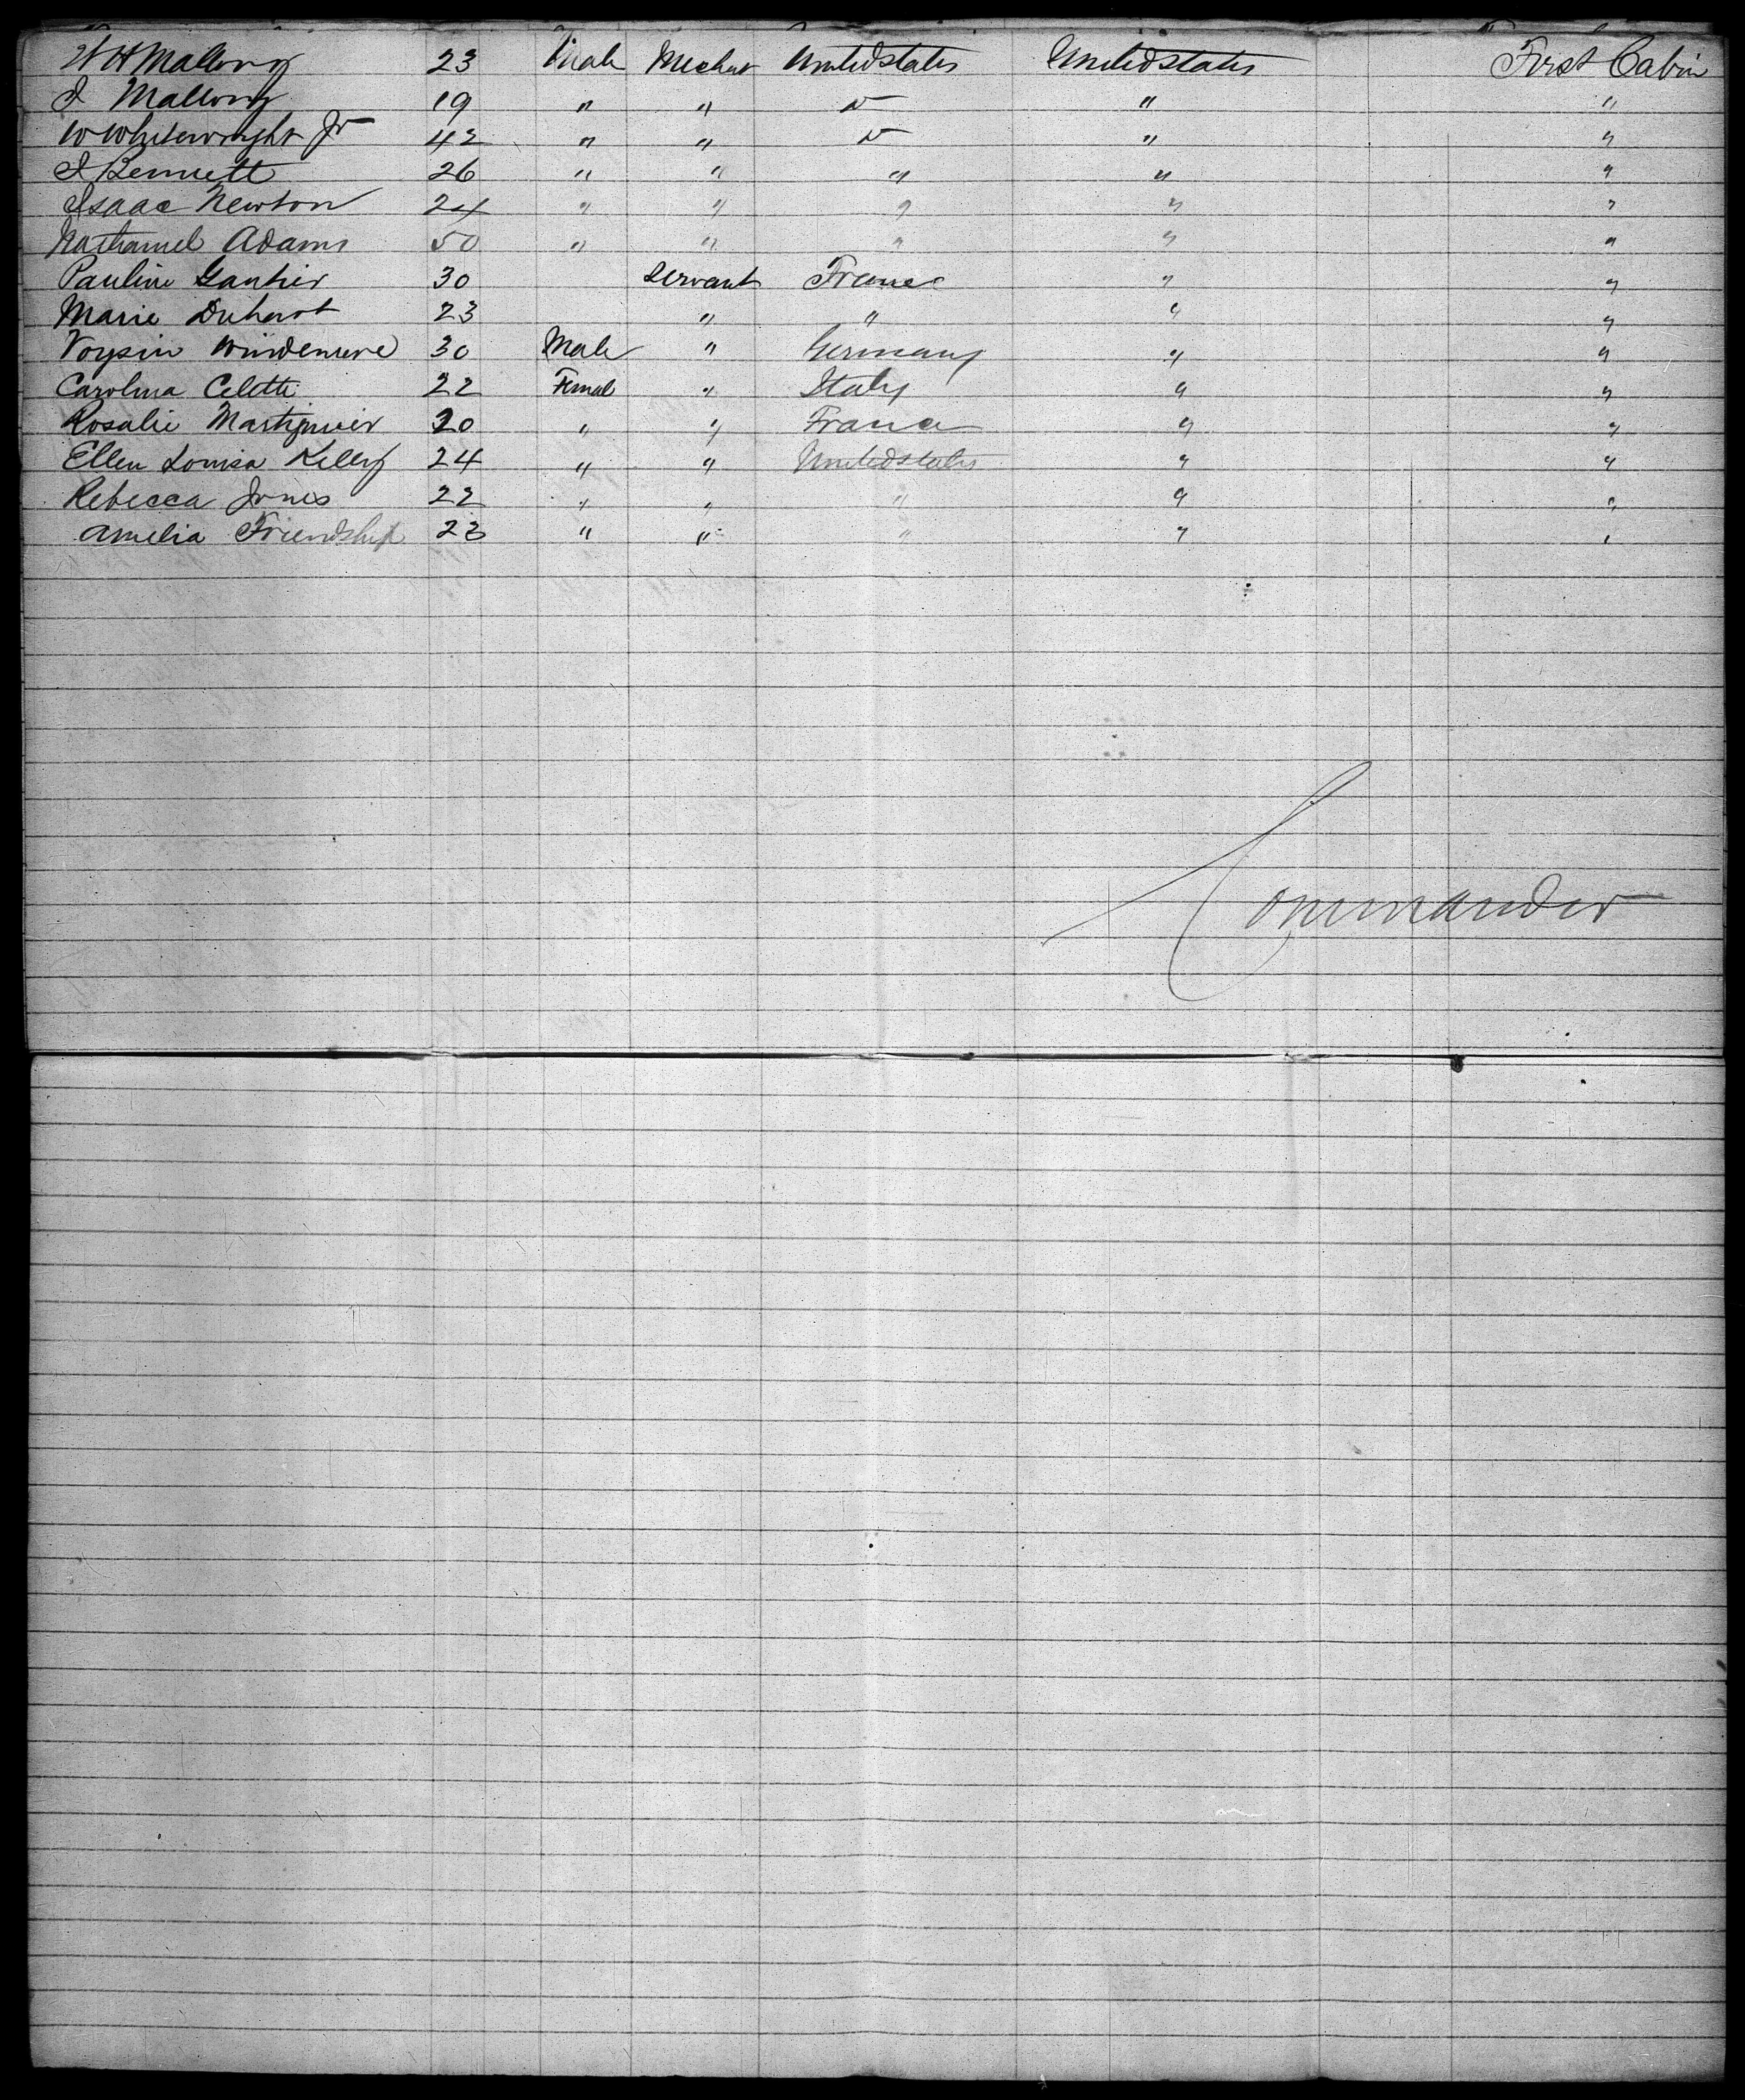 W H Mallory 23 Male Mechnt Unitedstates Unitedstates First Cabin
J Mallory 19 " " " " "
W Whitewright Jr 42 " " " " "
J Bennett 26 " " " " "
Isaac Newton 24 " " " " "
Nathaniel Adams 50 " " " " "
Pauline Gautier 30 Servant France " "
Marie Duherot 23 " " " "
Voysin Windemere 30 Male " Germany " "
Carolina Celetti 22 Femal " Italy " "
Rosalie 20 " " France " "
Ellen Louisa Kelly 24 " " Unitedstates " "
Rebecca Jones 22 " " " " "
Amelia Friendship 23 " " " " "
Commander